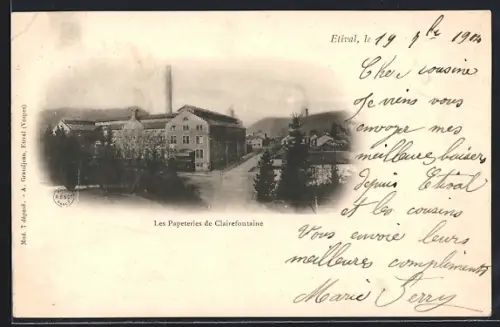 Etival, le 19 7bre 1904
Cher cousine
Je viens vous
envoyer mes
meilleure baisers
depuis Etival
et les cousins
Vous envoie leurs
meilleures compliments
Marie Ferry
Les Papeteries de Clairefontaine
Mod. T déposé. - A. Grandjean, Etival (Vosges)